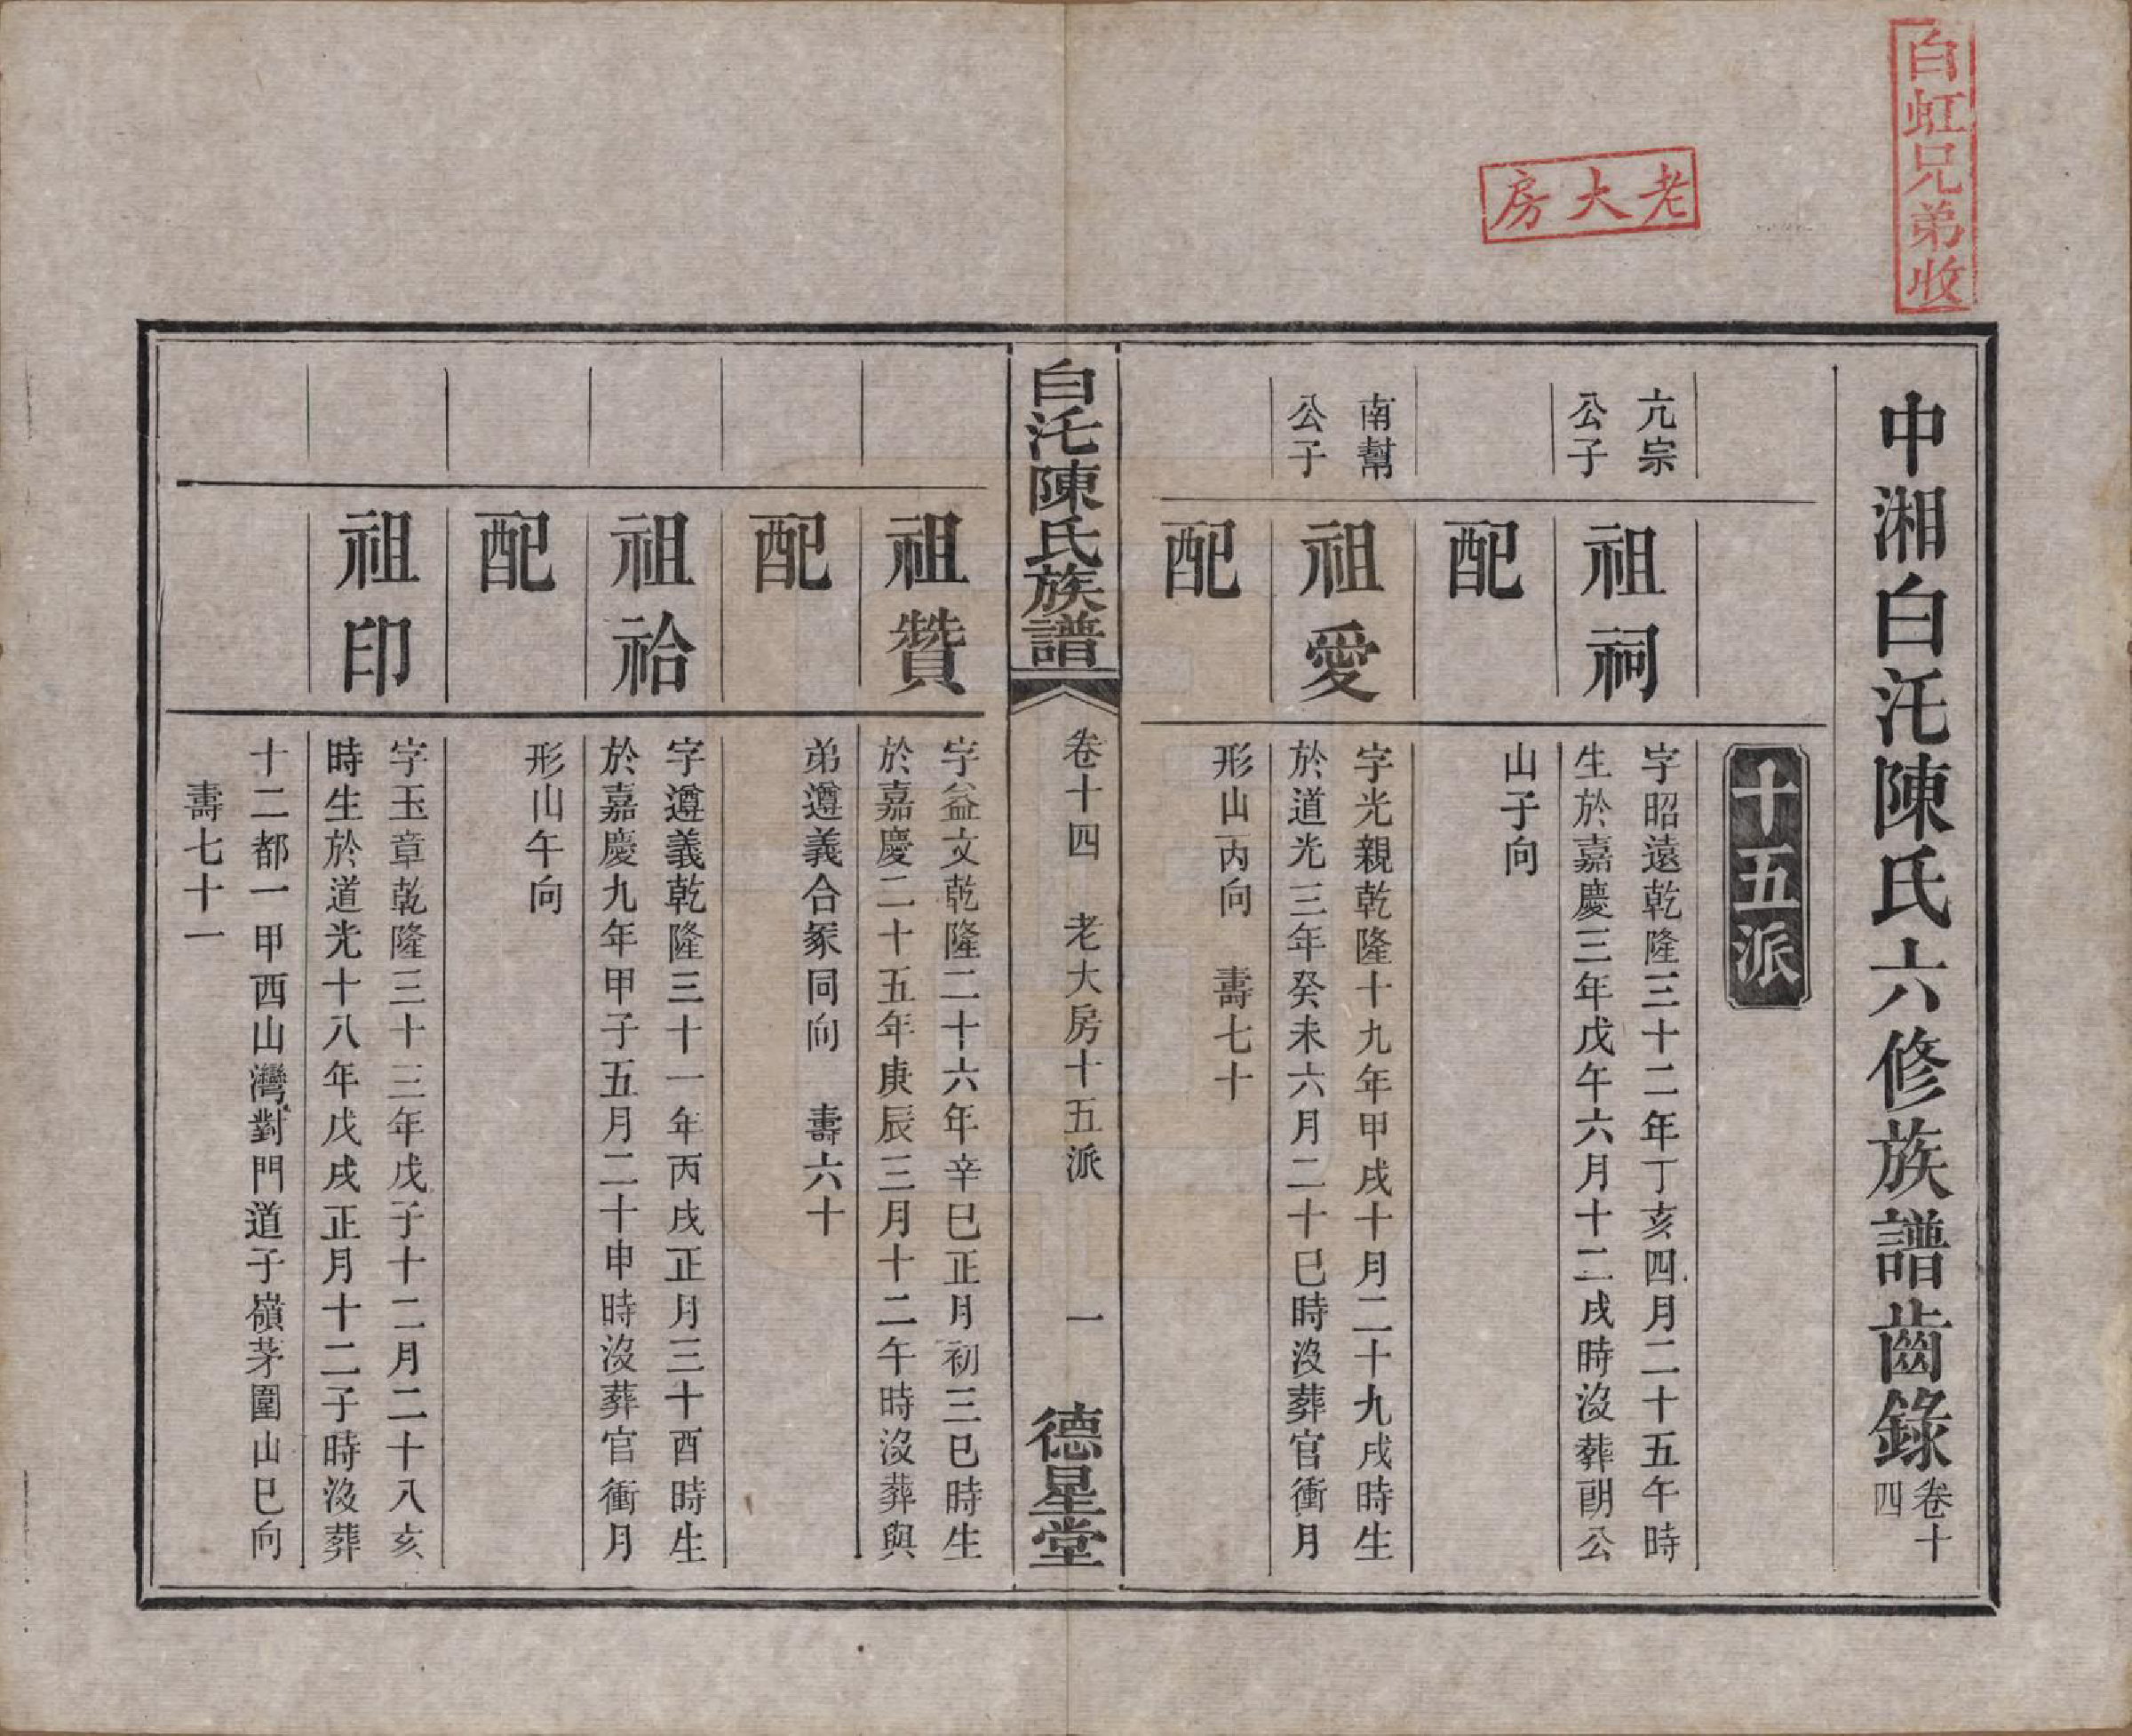 白虹兄弟收
老大房
中湘白汑陳氏六修族譜齒錄卷十四
十五派
亢宗公子
祖祠
字昭遠乾隆三十二年丁亥四月二十五午時
生於嘉慶三年戊午六月十二戌時沒葬萌公
配
山子向
南幫公子
祖愛
字光親乾隆十九年甲戌十月二十九戌時生
於道光三年癸未六月二十巳時沒葬官衝月
配
形山丙向 壽七十
白汑陳氏族譜
卷十四 老大房十五派 一
德星堂
祖贊
字益文乾隆二十六年辛巳正月初三巳時生
於嘉慶二十五年庚辰三月十二午時沒葬與
配
弟遵義合冢同向 壽六十
祖祫
字遵義乾隆三十一年丙戌正月三十酉時生
於嘉慶九年甲子五月二十申時沒葬官衝月
配
形山午向
祖印
字玉章乾隆三十三年戊子十二月二十八亥
時生於道光十八年戊戌正月十二子時沒葬
十二都一甲西山灣對門道子嶺茅圍山巳向
壽七十一